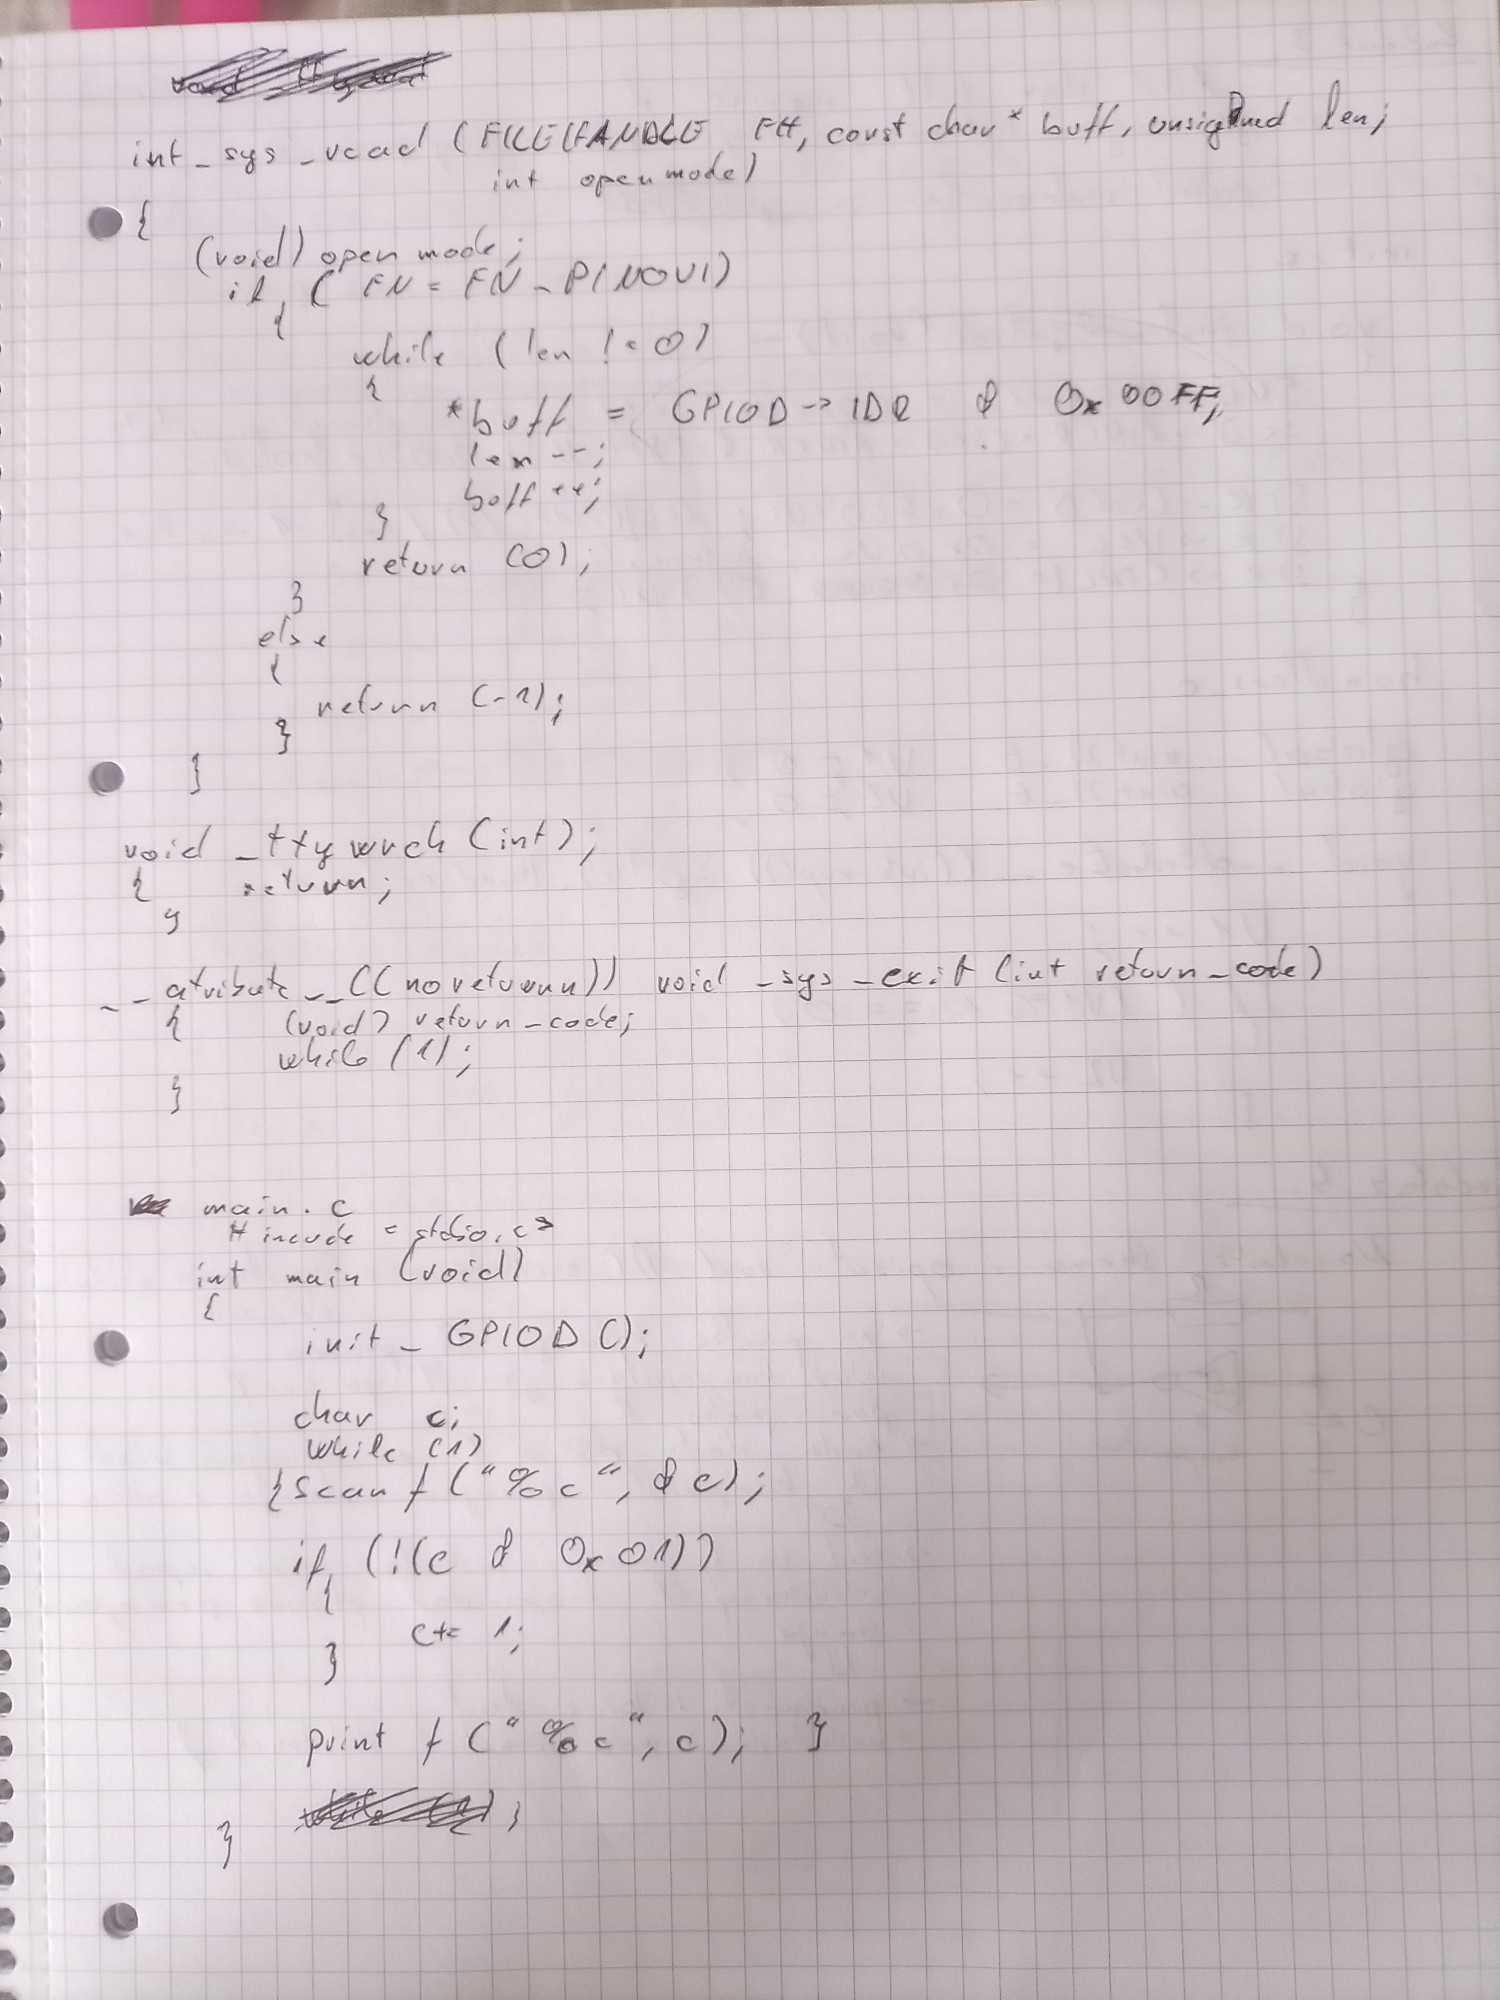 int _sys _read (FILEHANDLE FH, const char* buff, unsigned len;
int openmode)
{
(void) open mode;
if ( FN = FN _ PINOUI)
{
while (len != 0)
{
*buff = GPIOD -> IDR & 0x00FF;
len --;
buff ++;
}
return (0);
}
else
{
return (-1);
}
}
void _ttywrch (int);
{ return;
}
__atribute__((noreturn)) void _sys _exit (int return_code)
{ (void) return_code;
while (1);
}
main.c
# incude <stdio.c>
int main (void)
{
init_ GPIOD ();
char c;
while (1)
{scanf ("%c", &c);
if (!(c & 0x01))
{
c+= 1;
}
printf ("%c", c); }
;
}